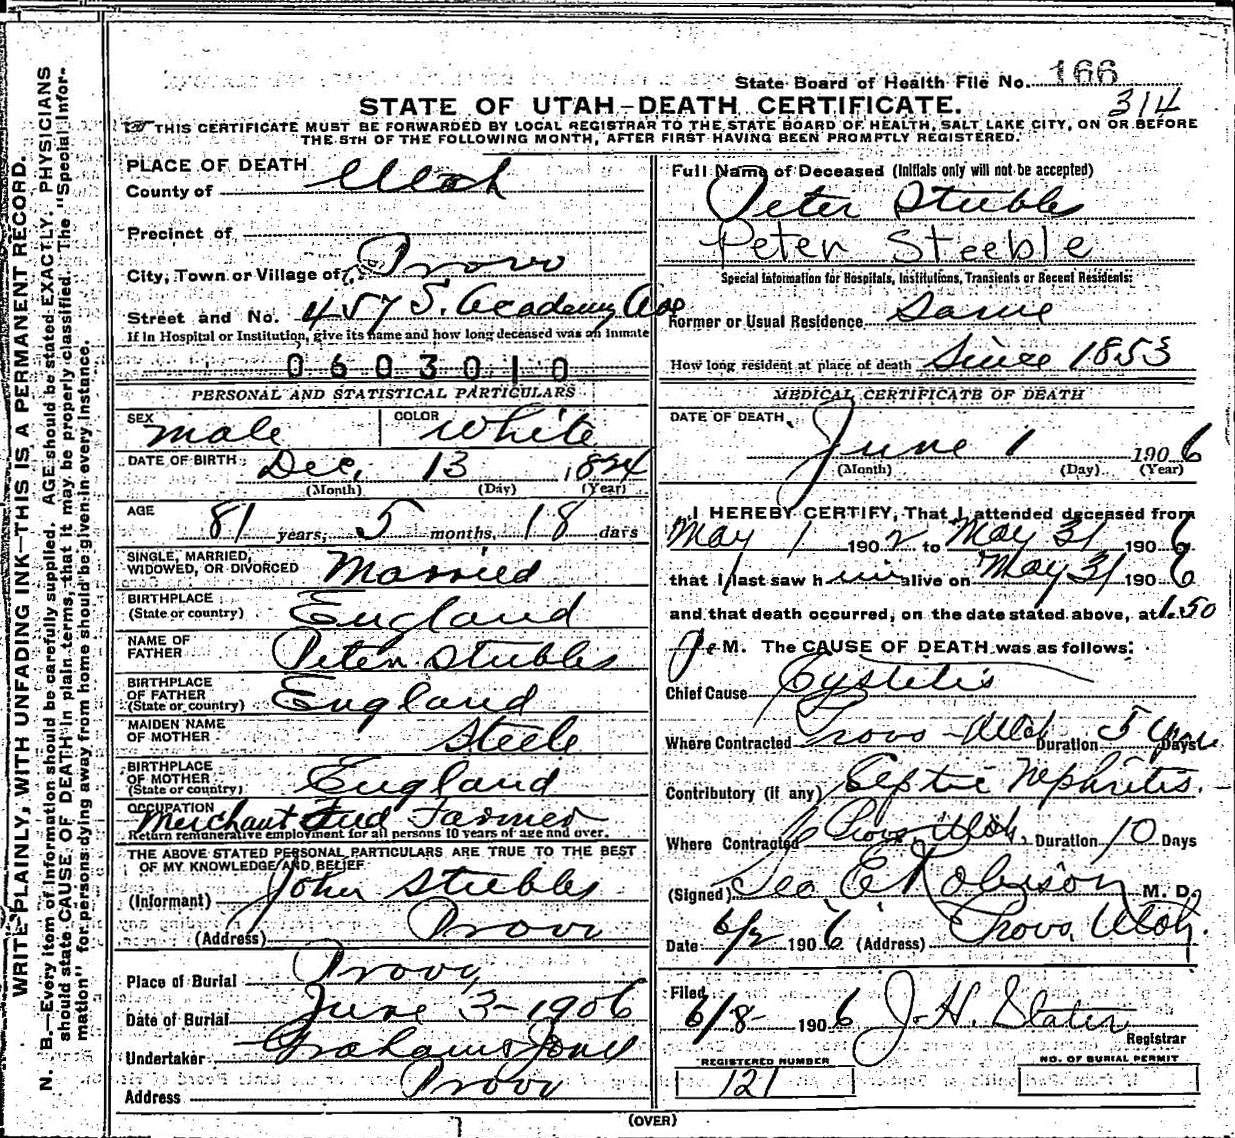 State Board of Health File No. 166
314
STATE OF UTAH—DEATH CERTIFICATE.
THIS CERTIFICATE MUST BE FORWARDED BY LOCAL REGISTRAR TO THE STATE BOARD OF HEALTH, SALT LAKE CITY, ON OR BEFORE
THE 5TH OF THE FOLLOWING MONTH, AFTER FIRST HAVING BEEN PROMPTLY REGISTERED.
WRITE PLAINLY, WITH UNFADING INK—THIS IS A PERMANENT RECORD.
N. B.—Every item of information should be carefully supplied. AGE should be stated EXACTLY. PHYSICIANS
should state CAUSE OF DEATH in plain terms, that it may be properly classified. The "Special Infor-
mation" for persons dying away from home should be given in every instance.
PLACE OF DEATH
County of Utah
Precinct of
City, Town or Village of Provo
Street and No. 457 S. Academy Ave
If in Hospital or Institution, give its name and how long deceased was an inmate
0603010
PERSONAL AND STATISTICAL PARTICULARS
SEX male COLOR White
DATE OF BIRTH Dec. 13 1824
(Month) (Day) (Year)
AGE 81 years, 5 months, 18 days
SINGLE, MARRIED,
WIDOWED, OR DIVORCED Married
BIRTHPLACE
(State or country) England
NAME OF
FATHER Peter Stubbs
BIRTHPLACE
OF FATHER
(State or country) England
MAIDEN NAME
OF MOTHER Steele
BIRTHPLACE
OF MOTHER
(State or country) England
OCCUPATION
Merchant and Farmer
Return remunerative employment for all persons 10 years of age and over.
THE ABOVE STATED PERSONAL PARTICULARS ARE TRUE TO THE BEST
OF MY KNOWLEDGE AND BELIEF
(Informant) John Stubbs
(Address) Provo
Place of Burial Provo,
Date of Burial June 3-1906
Undertaker Graham & Jones
Address Provo
Full Name of Deceased (Initials only will not be accepted)
Peter Stubbs
Peter Steeble
Special Information for Hospitals, Institutions, Transients or Recent Residents:
Former or Usual Residence Same
How long resident at place of death Since 1853
MEDICAL CERTIFICATE OF DEATH
DATE OF DEATH
June 1 1906
(Month) (Day) (Year)
I HEREBY CERTIFY, That I attended deceased from
May 1 1902 to May 31 1906
that I last saw him alive on May 31 1906
and that death occurred, on the date stated above, at 1.50
P. M. The CAUSE OF DEATH was as follows:
Chief Cause Cystetis
Where Contracted Provo Utah Duration 5 years Days
Contributory (if any) Septic Nephritis.
Where Contracted Provo Utah, Duration 10 Days
(Signed) Geo E Robison M. D.
Date 6/2 1906 (Address) Provo, Utah.
Filed
6/8- 1906 J. H. Slater
Registrar
REGISTERED NUMBER
121
NO. OF BURIAL PERMIT
(OVER)